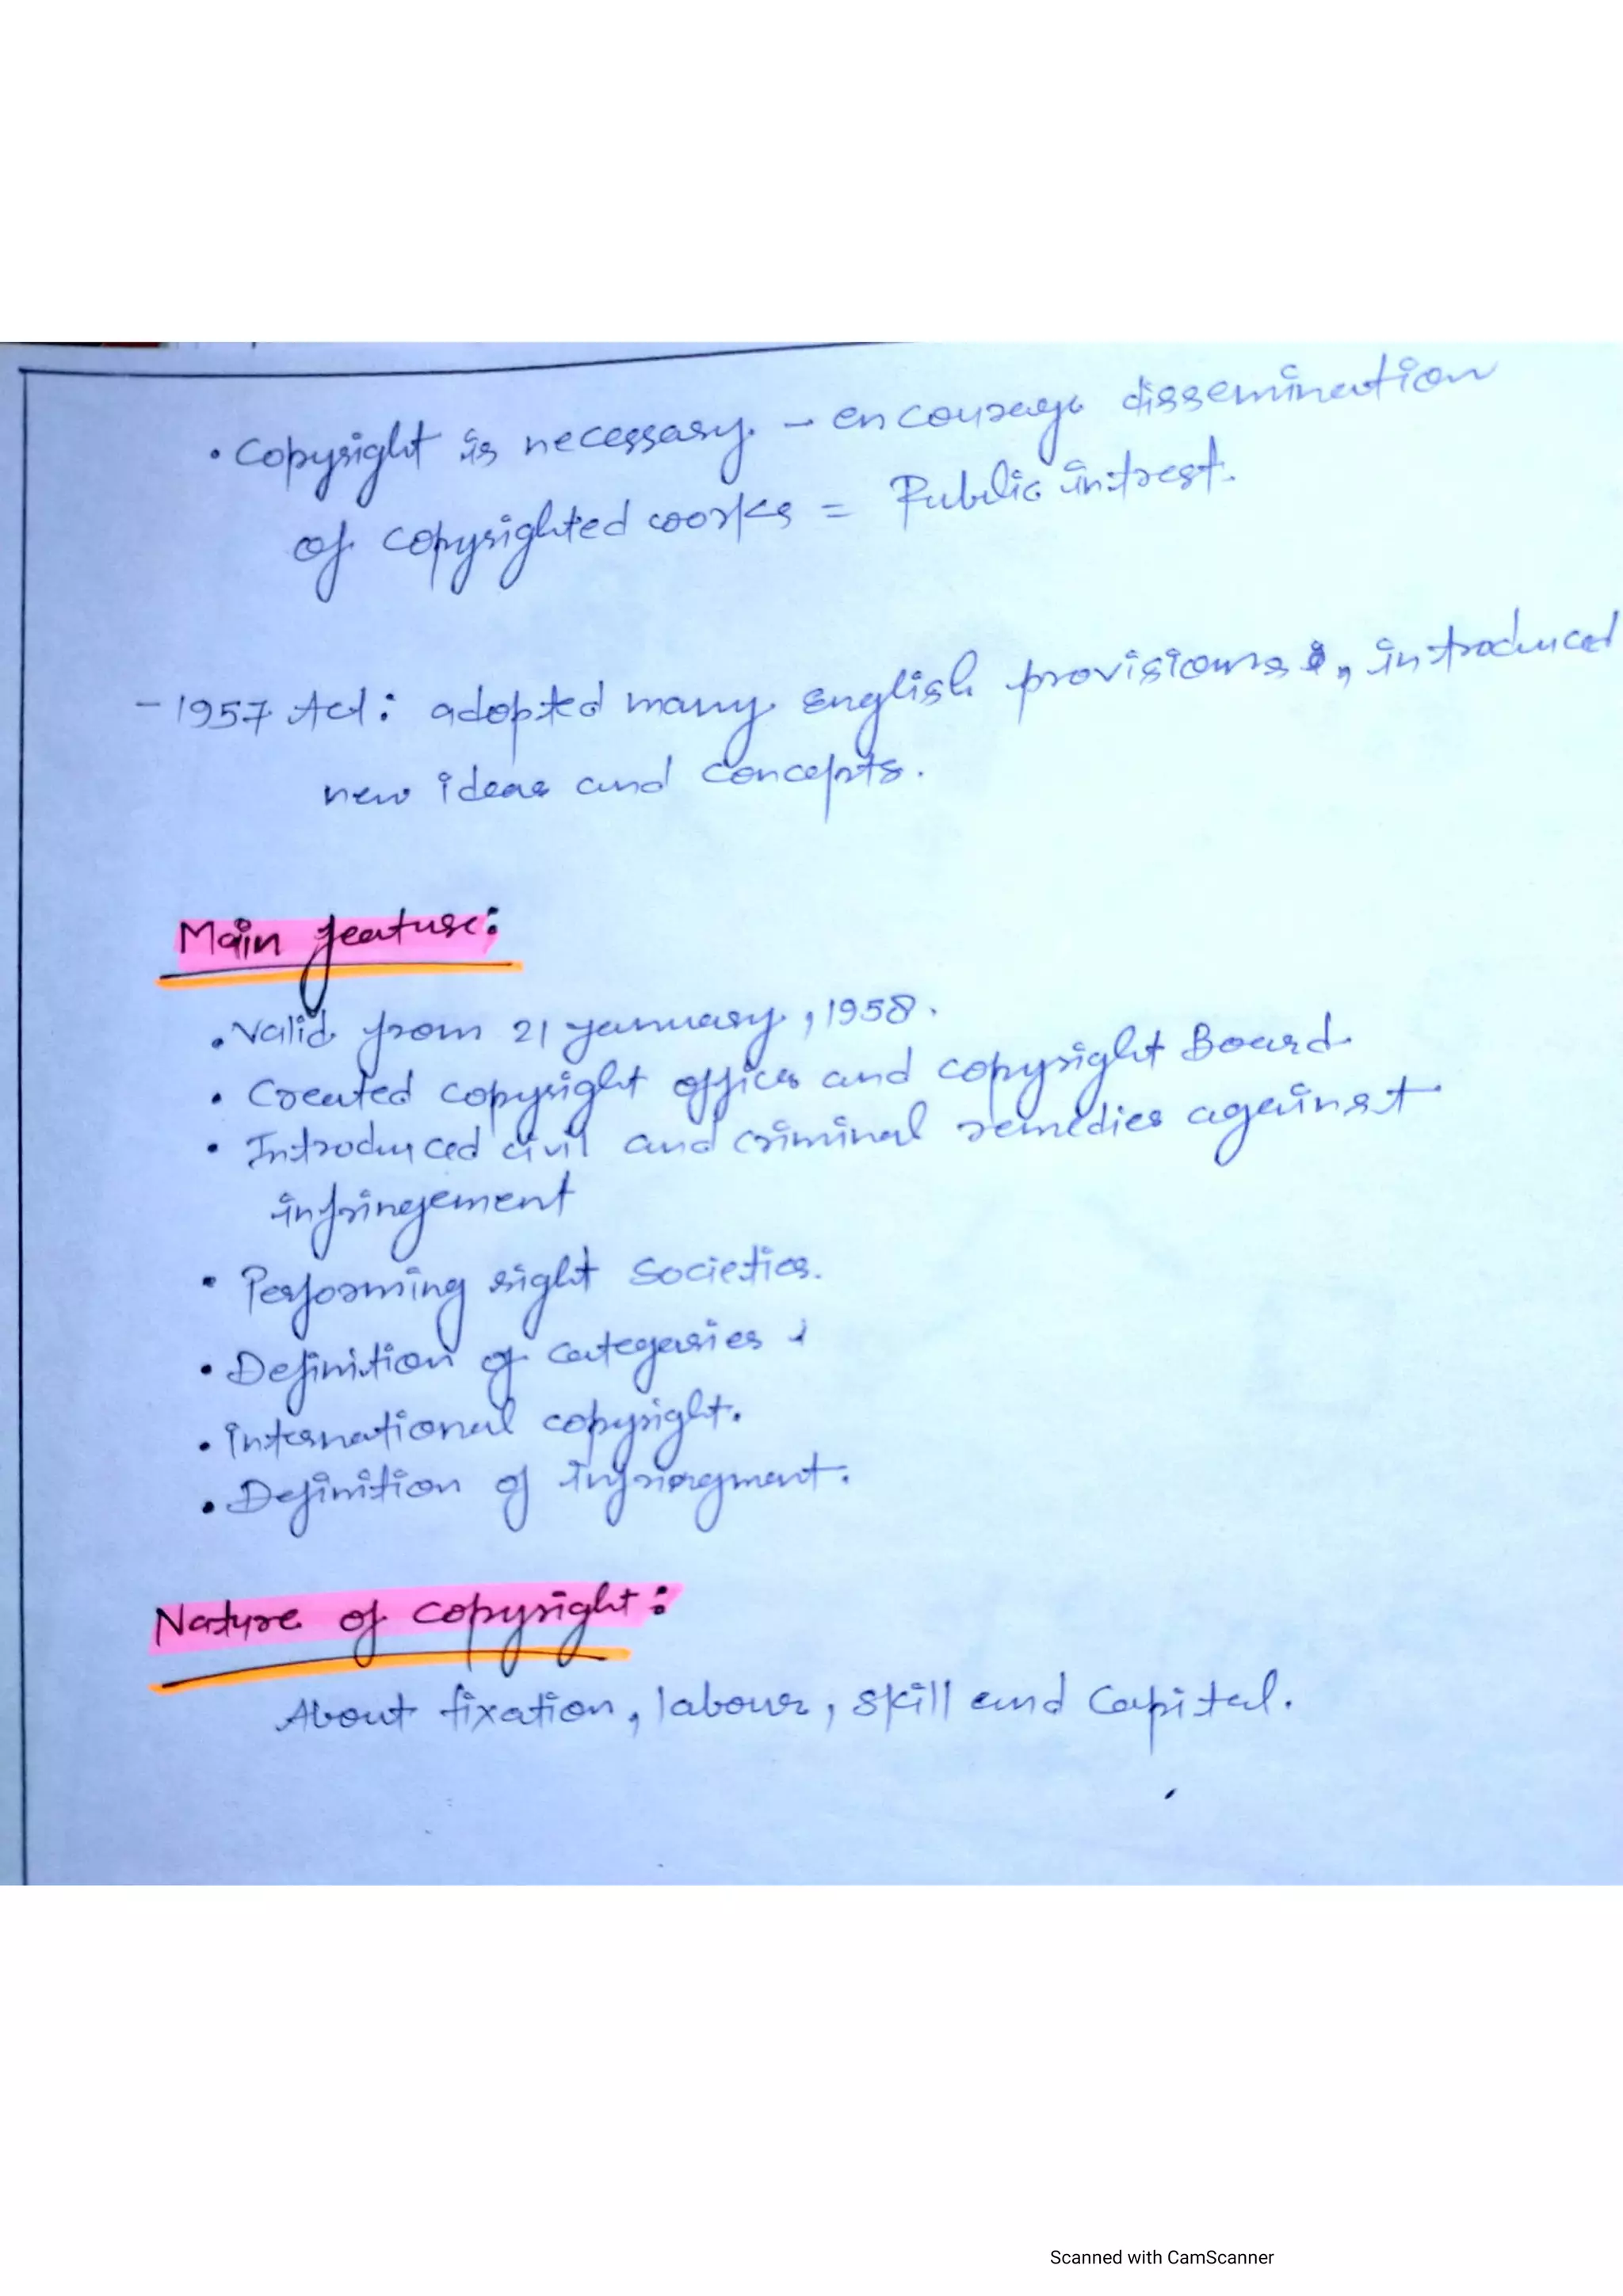 • Copyright is necessary - encourage dissemination
of copyrighted works = Public intrest.
- 1957 Act: adopted many english provisions, introduced
new ideas and concepts.
Main feature:
• Valid from 21 january, 1958.
• Created copyright office and copyright Board
• Introduced civil and criminal remedies against
infringement
• Performing right Societies.
• Definition of categories
• international copyright.
• Definition of Infringment.
Nature of copyright:
About fixation, labour, skill and Capital.
Scanned with CamScanner